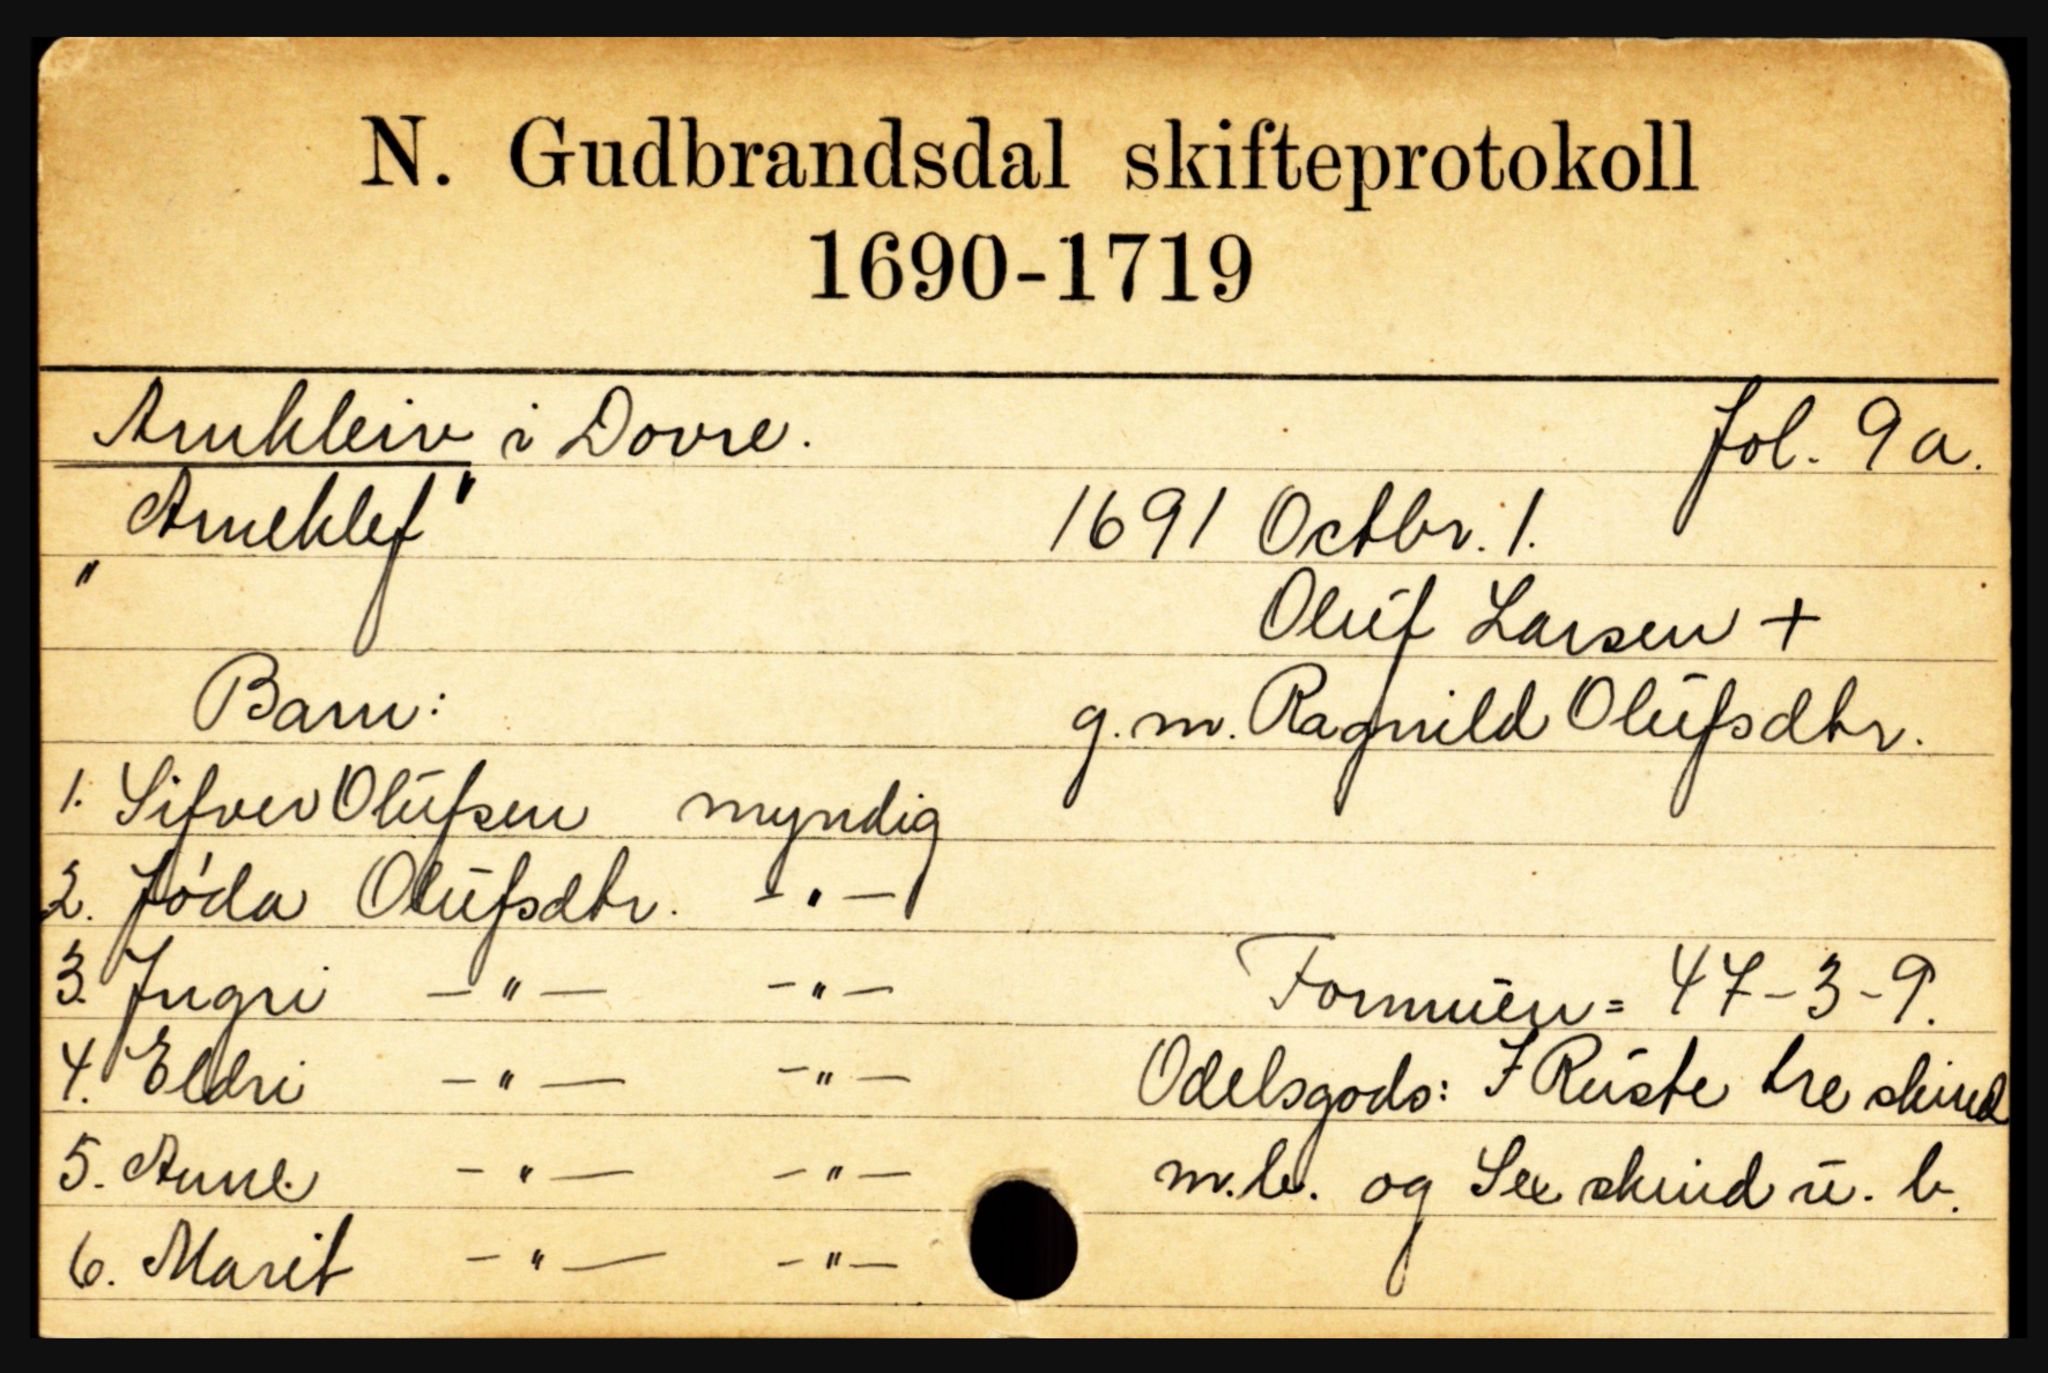 N. Gudbrandsdal skifteprotokoll
1690-1719
Arnkleiv i Dovre. fol. 9a.
"Arneklef" 1691 Octbr. 1.
Oluf Larsen +
Barn: g. m. Ragnild Olufsdtr.
1. Sifver Olufsen myndig
2. Jóda Olufsdtr. -"-
3. Ingri -"- -"- Formuen = 47-3-9.
4. Eldri -"- -"- Odelsgods: I Ruste tre skind
5. Anne -"- -"- m.b. og Sex skind u. b.
6. Marit -"- -"-